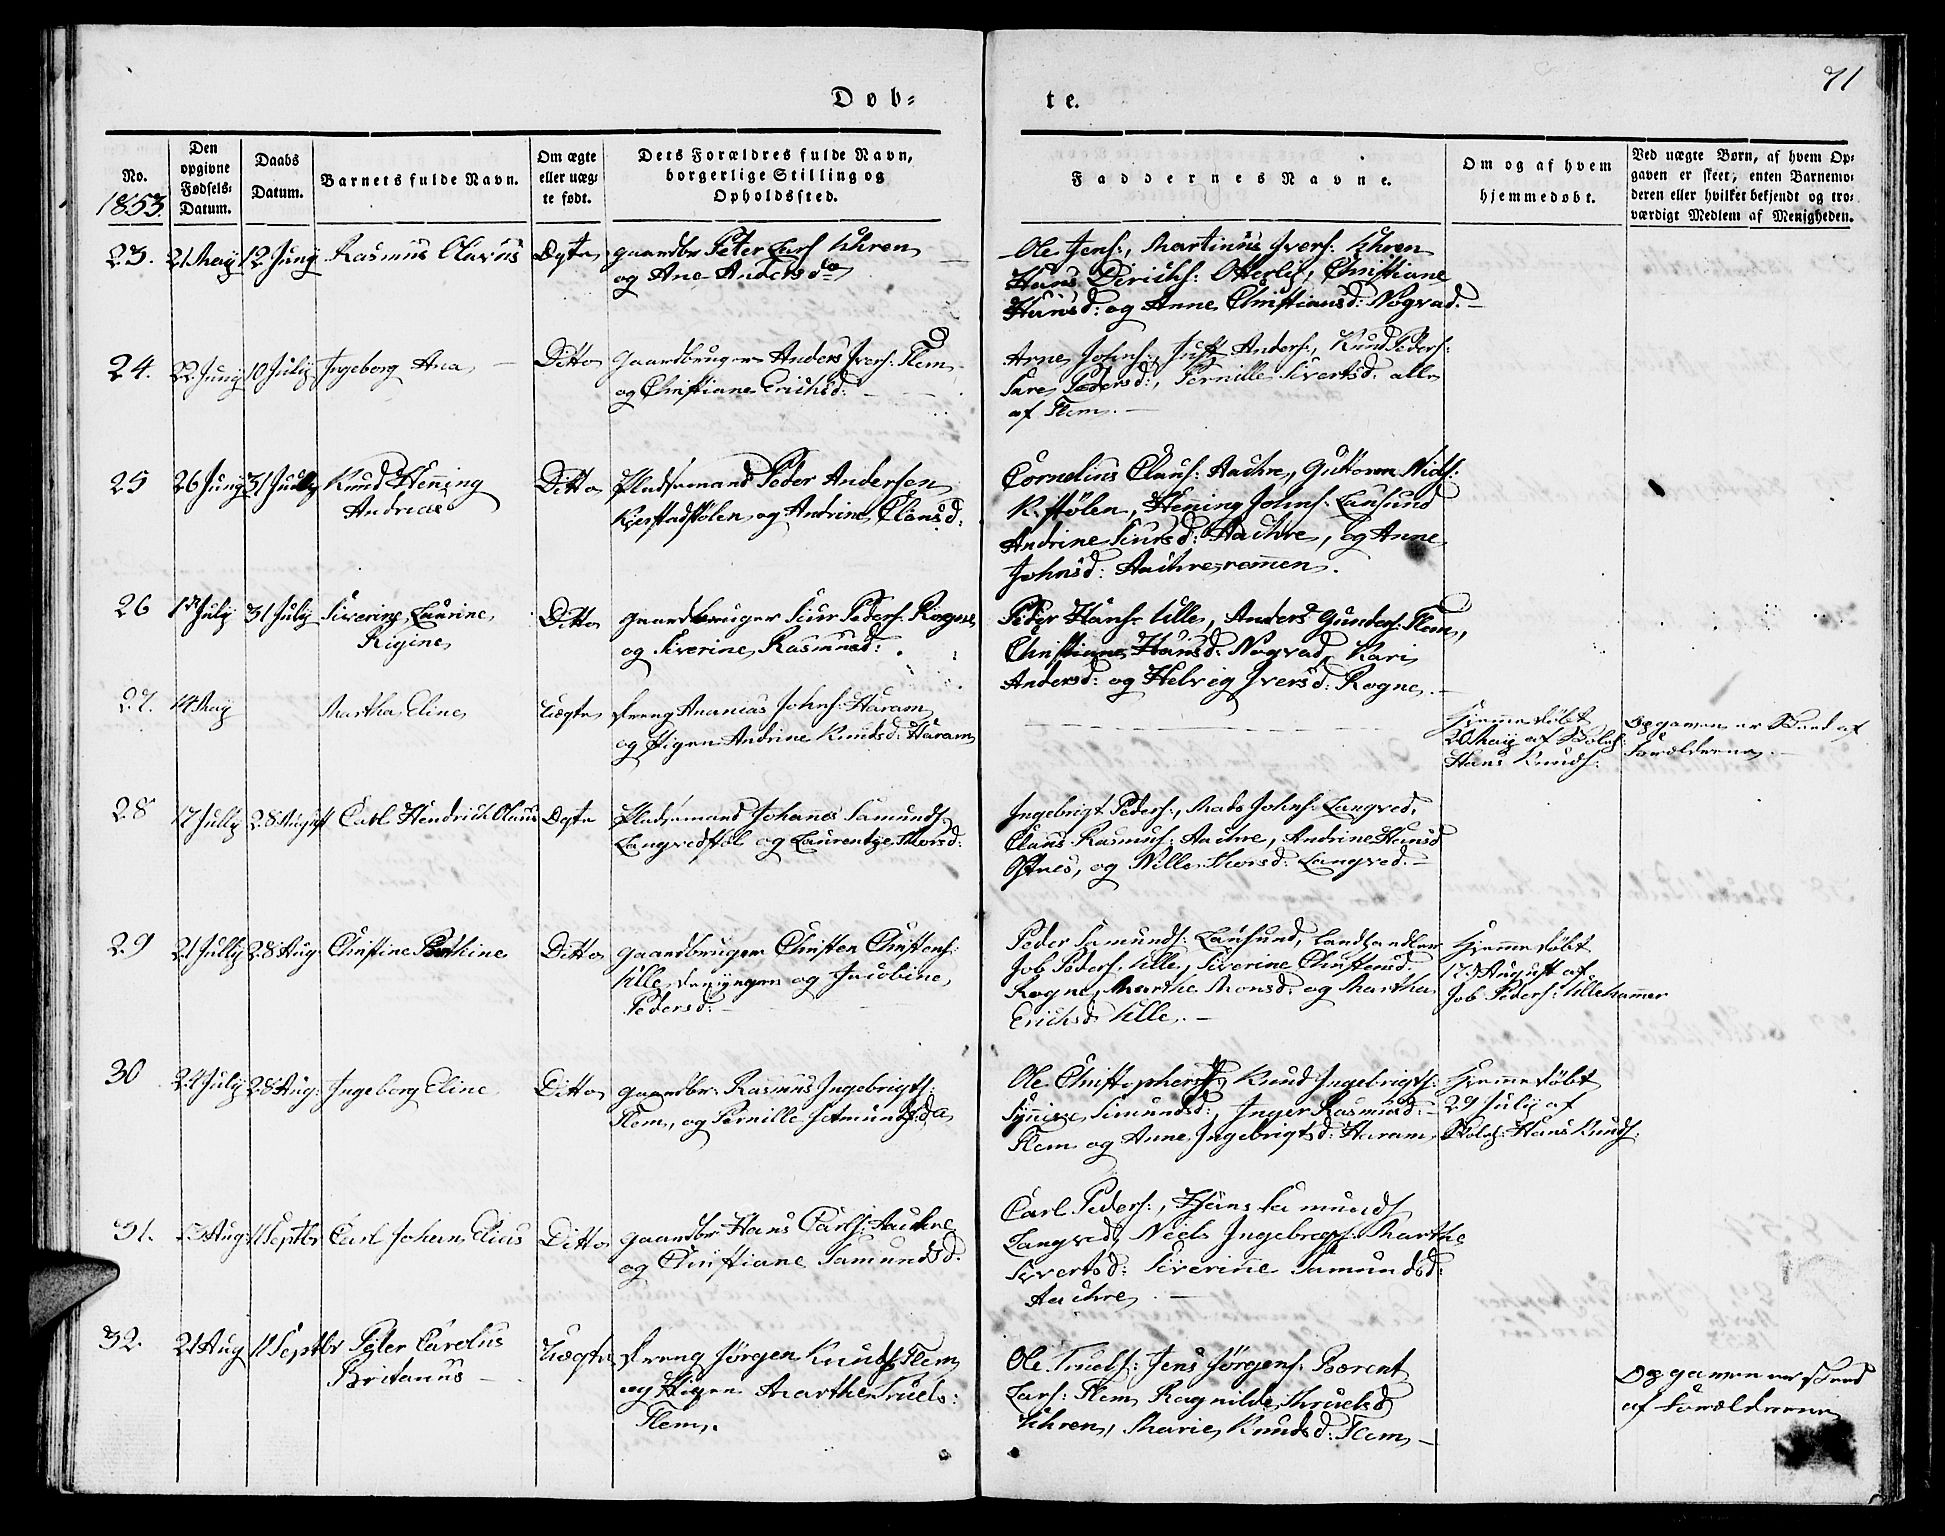 71
Døb-
te.
No.
1853.
Den
opgivne
Fødsels-
Datum.
Daabs
Datum.
Barnets fulde Navn.
Om ægte
eller uæg-
te født.
Dets Forældres fulde Navn,
borgerlige Stilling og
Opholdssted.
Faddernes Navne.
Om og af hvem
hjemmedøbt.
Ved uægte Børn, af hvem Op-
gaven er skeet, enten Barnemo-
deren eller hvilket bekjendt og tro-
værdigt Medlem af Menigheden.
23. 21 May 12 Juny Rasmus Olavus Ægte gaardbr Peter Lars Uhren
og Ane Andersda
Ole Jens:, Martinus Ivers: Uhren
Hans Dirichs: Otterlei, Christiane
Hansd: og Anne Christiansd: Nogvad.
24. 22 Juny 10 July Ingeborg Ana Ditto Gaardbruger Anders Ivers: Flem
og Christiane Erichsd:
Arne Johns:, Just Anders:, Knud Peders:
Sare Pedersd:, Pernille Sivertsd: alle
af Flem.
25 26 Juny 31 July Knud Henning
Andreas
Ditto Pladsemand Peder Andersen
Kjerstadstølen og Andrine Clausd:
Cornelius Claus: Aachre, Guttorm Niels:
K.stølen, Hening Johns: Lausund
Andrine Siursd: Aachre, og Anne
Johnsd: Aachreremen.
26 1ste July 31 July Siverine Laurine
Rigine
Ditto gaardbruger Siur Peders: Rogne
og Siverine Rasmusd:
Peder Hans: Ulle, Anders Gunders: Flem,
Christiane Hansd: Nogvad, Kari
Andersd: og Helvig Iversd: Rogne.
27. 14 May Martha Eline Uægte dreng Ananias Johns: Haram
og Pigen Andrine Knudsd: Haram
Hjemmedøbt
20 May af Skoleh:
Hans Knuds:
Opgaven er skeed af
Forælderne.
28 17 July 28 August Carl Hendrich Olaus Ægte Pladsemand Johannes Samunds:
Langvedstøl og Laurentze Thorsd:
Ingebrigt Peders:, Mads Johns: Langved,
Claus Rasmus: Aachre, Andrine Hansd
Østnes, og Nille Thorsd: Langved.
29 21 July 28 Aug Christine Berthine Ditto gaardbruger Christen Christens:
Ulle og Jacobine
Pedersd:
Peder Samunds: Lausund, Landhandler
Job Peders: Ulle, Siverine Christensd.
Rogne, Marthe Monsd: og Martha
Erichsd: Ulle.
Hjemmedøbt
17 August af
Job Peders: Ullehammer
30 24 July 28 Aug: Ingeborg Eline Ditto gaardbr: Rasmus Ingebrigts:
Flem, og Pernille
Ole Christophers:, Knud Ingebrigts:
Simundsd:, Inger Rasmusd:
Flem og Anne Ingebrigtsd: Haram
Hjemmedøbt
29 July af
Skoleh: Hans Knuds:
31. 13 Aug 11 Septbr Carl Johan Elias Ditto gaardbr Hans Carls: Aachre
og Christiane Samundsd.
Carl Peders:, Hans Samunds
Langved, Niels Ingebregs: Marthe
Sivertsd: Siverine Samundsd:
Aachre.
32. 21 Aug 11 Septbr Peter Carolus
Britanus
Uægte dreng Jørgen Knuds: Flem
og Pigen Marthe Truels:
Flem.
Ole Truels: Jens Jørgens: Berent
Lars: Flem Ragnilde Thruelsd
Uhren, Marie Knudsd: Flem
Opgaven er skeed
af Forælderne